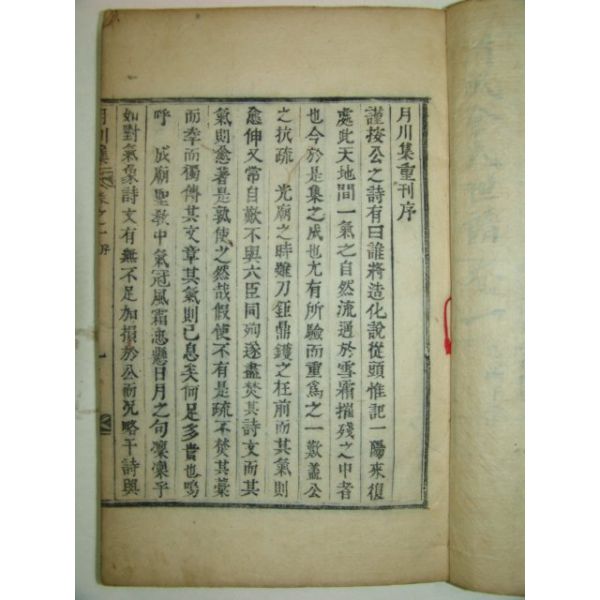 月川集重刊序
謹按公之詩有曰誰將造化說從頭惟記一陽來復
處此天地間一氣之自然流通於雪霜摧殘之中者
也今於是集之成也尤有所驗而重爲之一歎盖公
之抗疏 光廟之時雖刀鉅鼎鑊之在前而其氣則
愈伸又常自歎不與六臣同殉遂盡焚其詩文而其
氣則愈著是孰使之然哉假使不有是疏不焚其藁
而幸而獨傳其文章其氣則已息矣何足多貴也嗚
呼 成廟聖敎中氣冠風霜忠懸日月之句凜凜乎
如對氣象詩文有無不足加損於公而况略干詩與
月川集 卷之一 序